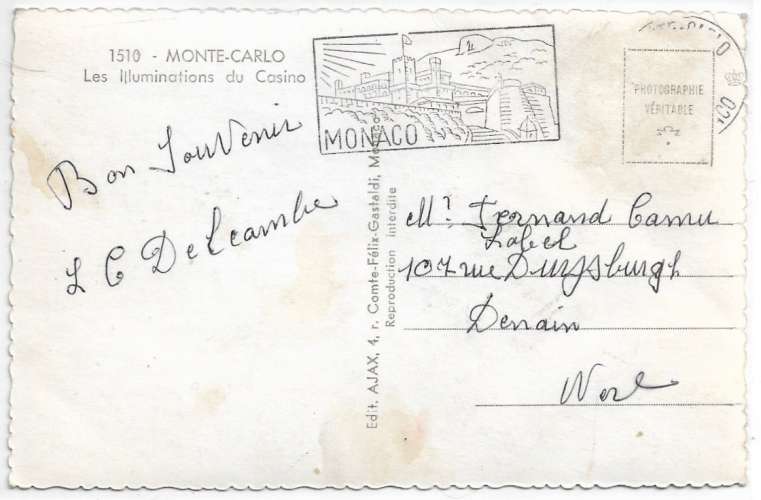 1510 - MONTE-CARLO
Les Illuminations du Casino
MONACO
PHOTOGRAPHIE
VÉRITABLE
Bon Souvenir
L C Delcambe
Edit. AJAX, 4, r. Comte-Félix-Gastaldi, Monaco
Reproduction interdite
Mr Fernand Camu
107 rue
Denain
Nord